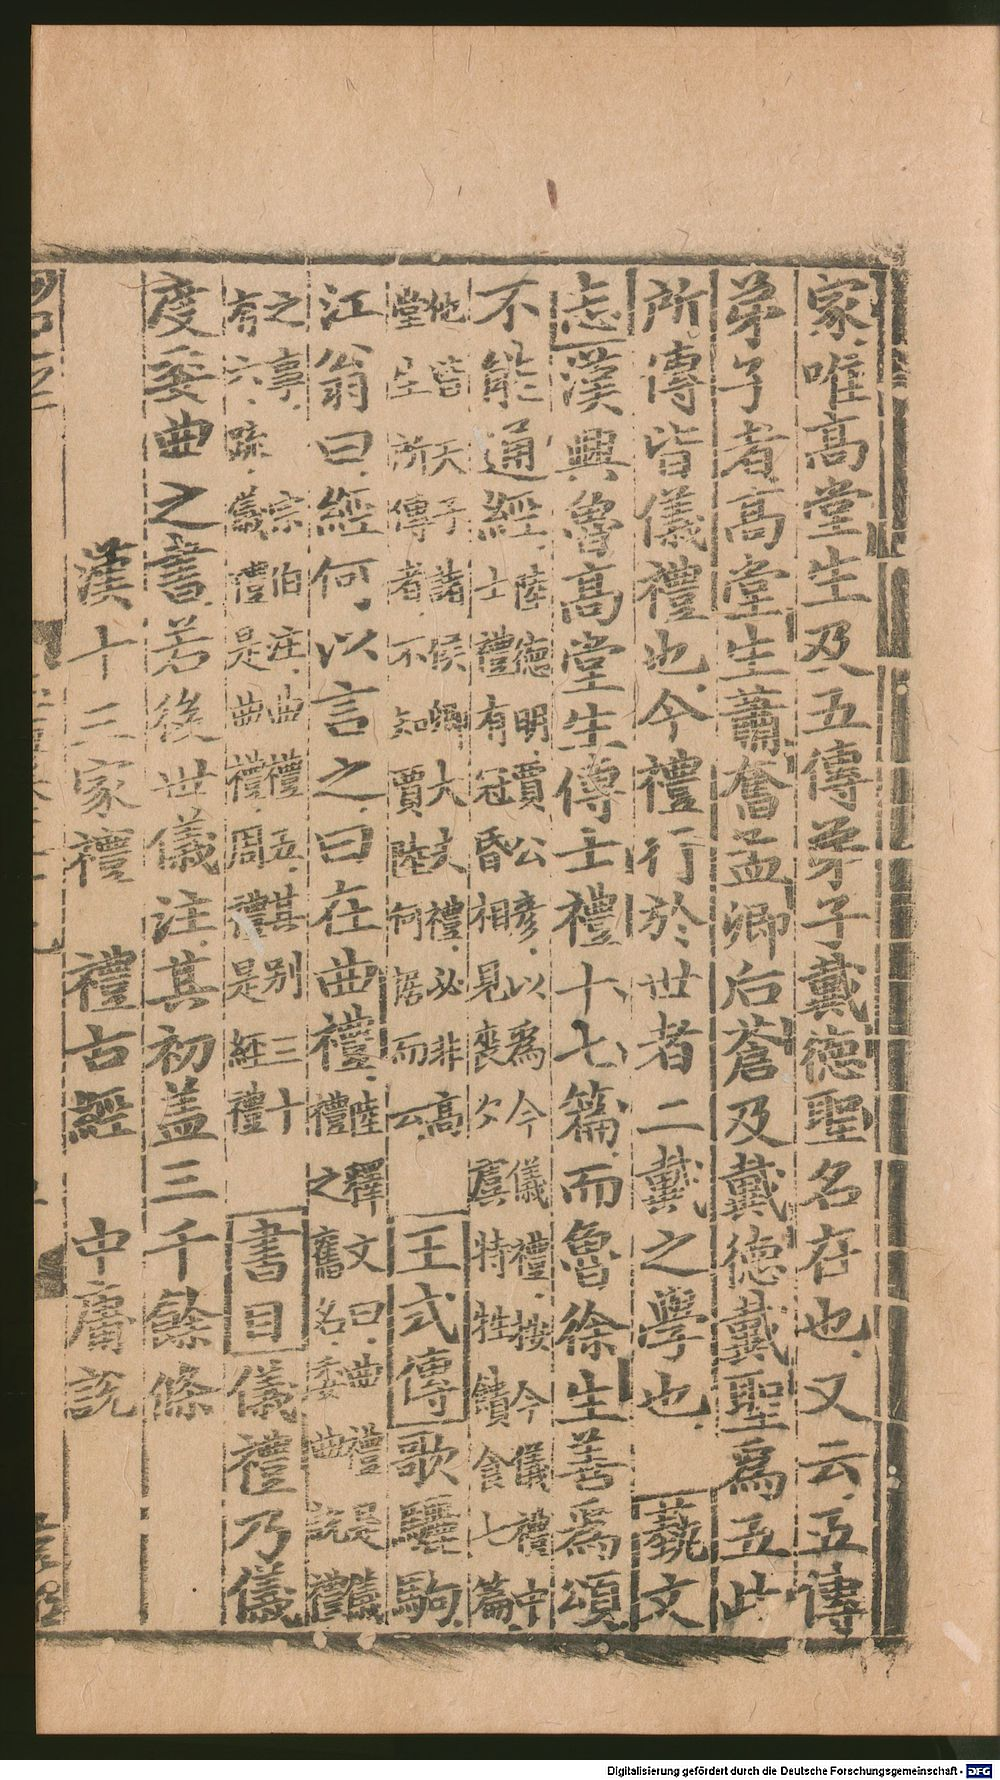 家唯高堂生及五傳弟子戴德聖名在也又云五傳
弟子者高堂生蕭奮孟卿后蒼及戴德戴聖爲五此
所傳皆儀禮也今禮行於世者二戴之學也 藝文
志漢興魯高堂生傳士禮十七篇而魯徐生善爲頌
不能通經陸德明賈公彥以爲今儀禮按今儀禮中
士禮有冠昏相見喪夕虞特牲饋食七篇
他皆天子諸侯卿大夫禮必非高
堂生所傳者不知賈陸何据而云 王式傳歌驪駒
江翁曰經何以言之曰在曲禮陸釋文曰曲禮是儀
禮之舊名委曲說禮
之事宗伯注曲禮五其別三十
有六疏儀禮是曲禮周禮是經禮 書目儀禮乃儀
度委曲之書若後世儀注其初盖三千餘條
漢十三家禮 禮古經 中庸說
Digitalisierung gefördert durch die Deutsche Forschungsgemeinschaft - DFG